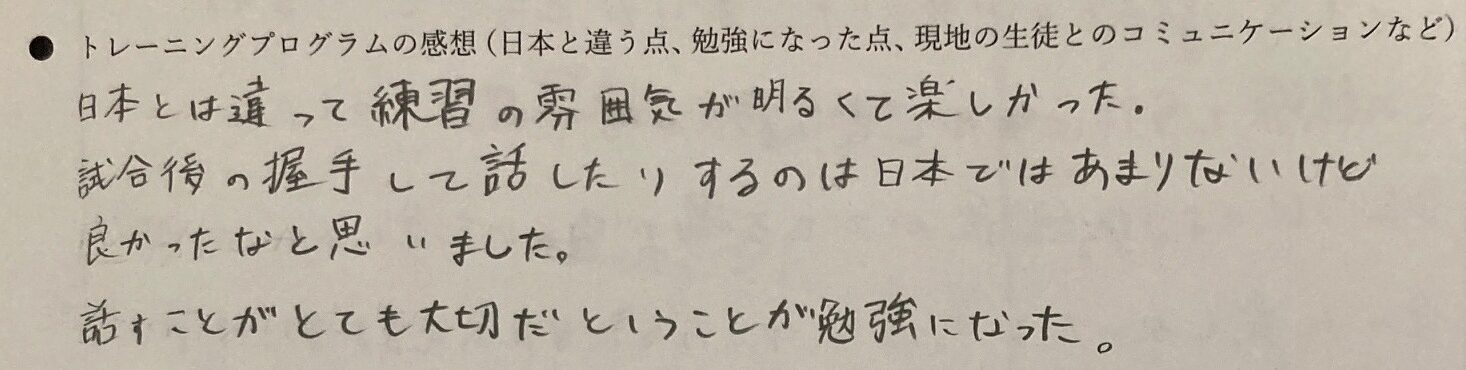 ● トレーニングプログラムの感想(日本と違う点、勉強になった点、現地の生徒とのコミュニケーションなど)
日本とは違って練習の雰囲気が明るくて楽しかった。
試合後の握手して話したりするのは日本ではあまりないけど
良かったなと思いました。
話すことがとても大切だということが勉強になった。